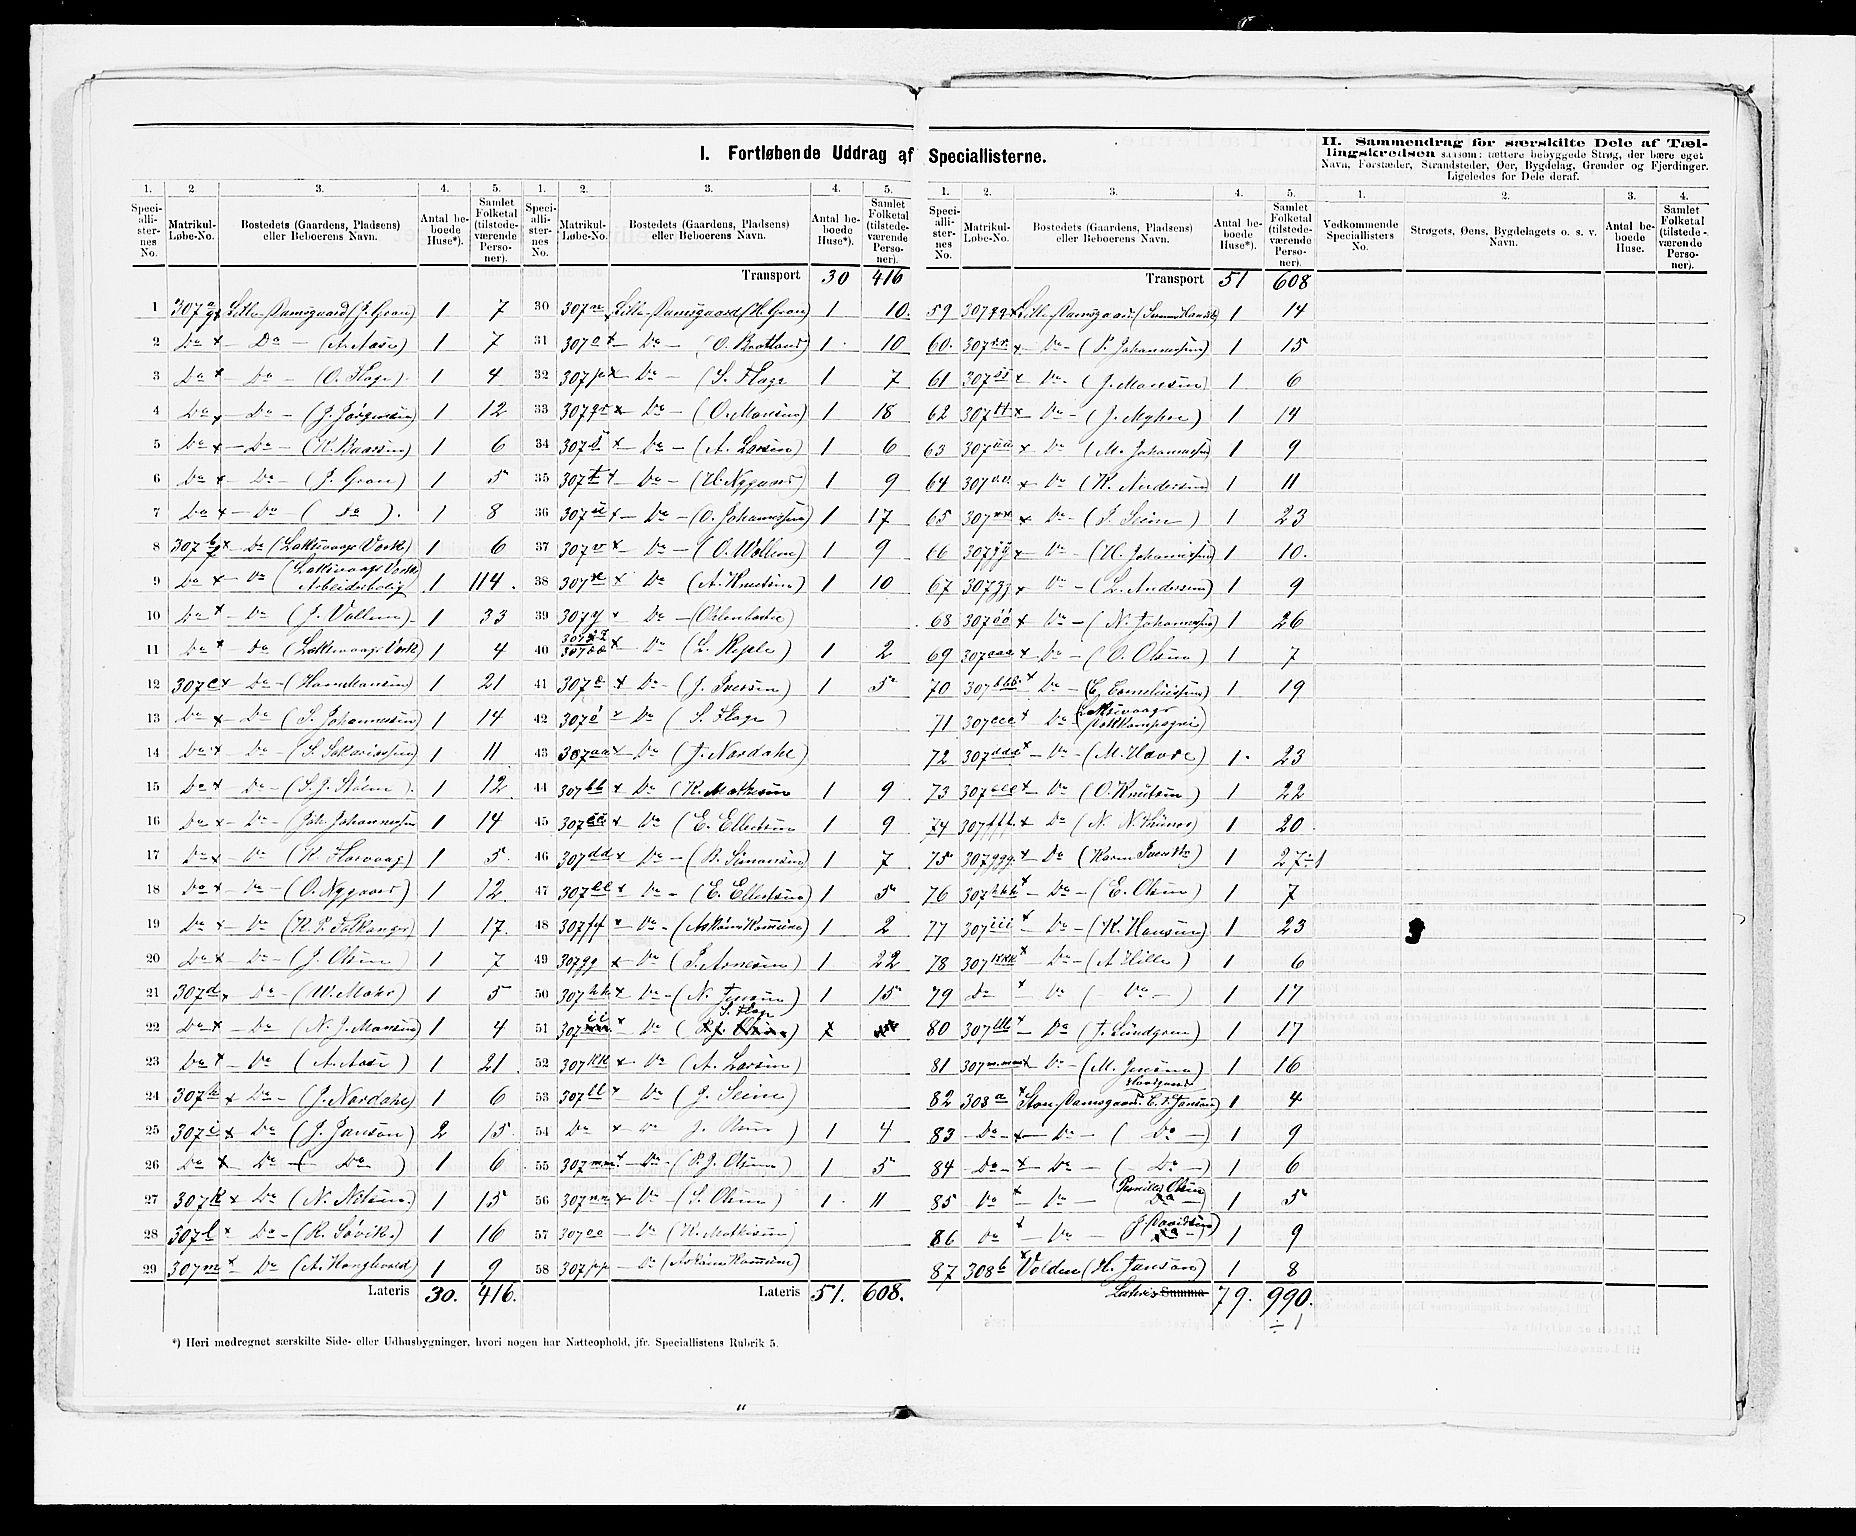 I. Fortløbende Uddrag af Speciallisterne.
II. Sammendrag for særskilte Dele af Tællingskredsen saasom: tættere bebyggede Strøg, der bære eget Navn, Forstæder, Strandsteder, Øer, Bygdelag, Grender og Fjerdinger. Ligeledes for Dele deraf.
1. 2 3. 4. 5.
Speciallisternes No. Matrikul-Løbe-No. Bostedets (Gaardens, Pladsens) eller Beboerens Navn. Antal beboede Huse*). Samlet Folketal (tilstedeværende Personer).
1 307 Lille Damsgaard (J. Gran) 1 7
2 Do x - Do - (A. Aase) 1 7
3 Do x - Do - (O. Flage) 1 4
4 Do x - Do - (J. Jörgensen) 1 12
5 Do x - Do - (K. Baarsen) 1 6
6 Do x - Do - (J. Gran) 1 5
7 Do x - Do - ( Do ). 1 8
8 307 x - Do (Laksevaags Værk) 1 6
9 Do x - Do (Laksevaags Værk Arbeiderbolig 1 114.
10 Do x - Do (J. Vollem) 1 33
11 Do x - Do (Laksevaags Værk) 1 4
12 307c x - Do - (Hans Hansen) 1 21
13 Do x - Do (S. Johannesen) 1 14
14 Do x - Do - (S. Sakariassen 1 11
15 Do x Do - (S. J. Stölen). 1 12.
16 Do x - Do - (Joh. Johannessen 1 14
17 Do x - Do (K. Florvaag) 1 5.
18 Do x - Do - (O. Nygaard) 1 12.
19 Do x - Do (K. P. Falkanger) 1 17.
20 Do x - Do - (J. Olsen) 1 7
21 307d x Do - (W. Mohr) 1 5
22 Do x - Do - (N. J. Monsen) 1 4
23 Do x - Do (A. Aase) 1 21.
24 307h x Do - (J. Nordahl) 1 6
25 307i x Do (J. Janson) 2 15.
26 Do x Do ( Do ) 1 6
27 307k x Do (N. Nilsen) 1 15
28 307l x Do - (K. Sövik) 1 16
29 307m x Do (A. Haughvold) 1 9
Lateris 30. 416.
1. 2. 3. 4. 5.
Speciallisternes No. Matrikul-Løbe-No. Bostedets (Gaardens, Pladsens) eller Beboerens Navn. Antal beboede Huse*). Samlet Folketal (tilstedeværende Personer).
Transport 30 416
30 307n Lille Damsgaard (H. Gran) 1 10.
31 307o x - Do - (O. Brotland) 1 10
32 307p x - Do - (S. Flage 1 7
33 307qr x - Do - (O. Monsen) 1 18
34 307s x - Do - (A. Larsen) 1 6
35 307t x - Do - (H. Nygaard) 1 9
36 307u x - Do - (O. Johannessen) 1 17
37 307v x - Do - (O. Wollem) 1 9
38 307x x Do (A. Knutsen) 1 10
39 307y x Do -
40 x - Do (L. Reple) 1 2
41 307e x Do - (J. Iversen) 1 5
42 307ö x Do (S. Flage )
43 307aa x - Do (J. Nordahl)
44 307bb x Do (K. Mathisen 1 9
45 307cc x Do (E. Ellertsen 1 9
46 307dd x Do - (B. Simonsen) 1 7
47 307ee x Do - (E. Ellertsen) 1 5
48 307ff x - Do - (Askøens Kommune) 1 2
49 307gg x - Do (P. Arnesen) 1 22
50 307hh x - Do - (N. Jensen) 1 15
51 307ii x - Do (S. Flage
52 307kk x - Do (A. Larsen)
53 307ll x - Do (J. Seim )
54 Do x - Do J. Olsen ) 1 4
55 307mm x - Do - (P. J. Olsen) 1 5
56 307nn x - Do - (S. Olsen) 1. 11
57 307oo - Do (K. Mathisen)
58 307pp - Do (Askøens Kommune)
Lateris 51. 608.
1. 2. 3. 4. 5.
Speciallisternes No. Matrikul-Løbe-No. Bostedets (Gaardens, Pladsens) eller Beboerens Navn. Antal beboede Huse*). Samlet Folketal (tilstedeværende Personer).
Transport 51 608
59 307qq x Lille Damsgaard 1 14
60. 307rr x - Do - (P. Johannessen) 1 15
61 307ss x Do - (J. Monsen) 1 6
62 307tt x - Do - (J. Myhre) 1 14
63 307uu x - Do (M. Johannessen 1 9
64 307vv x - Do (K. Andersen) 1 11
65 307xx x - Do - (J. Seim ) 1 23
66 307yy x - Do - (H. Johannessen) 1 10.
67 307zz x - Do - (L. Andersen) 1 9
68 307öö x - Do - (N. Johannessen) 1 26
69 307aaa x - Do - (O. Olsen) 1 7
70 307bbb x Do - (E. Corneliussen) 1 19
71 307ccc x Do (Laksevaags
72 307ddd x - Do - (M. Havre) 1. 23
73 307eee x - Do (O. Knutsen) 1 22
74 307fff x - Do 1 20.
75 307ggg x - Do 1 27÷1
76 307hhh x - Do - (E. Olsen) 1 7
77 307iii x - Do - (K. Hansen) 1 23
78 307kkk x - Do - (A. Hille) 1 6
79 Do x - Do ( - Do - ) 1 17
80 307lll x - Do (J. Lundgren) 1 17
81 307mmm x Do - (M. Jensen) 1 16
82 308a x Store Damsgaard Hovedgaard E. V. Janson) 1 4
83 - Do - x - Do - ( Do - ) 1 9
84 - Do - x - Do - ( - Do - ) 1 6
85 Do x - Do - (Pernille Olsen 1 5
86 Do x - Do - (J. Davidsen) 1 9
87 308b x Volden (H. Janson) 1 8
Lateris Summa 79. 990.
÷ 1
1. 2. 3. 4.
Vedkommende Speciallisters No. Strøgets, Øens, Bygdelagets o. s. v. Navn. Antal beboede Huse. Samlet Folketal (tilstedeværende Personer).
*) Heri medregnet særskilte Side- eller Udhusbygninger, hvori nogen har Natteophold, jfr. Speciallistens Rubrik 5.